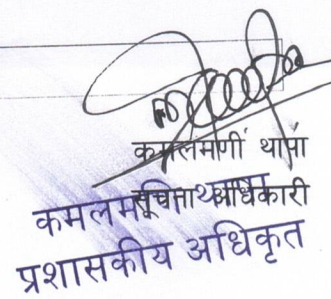 कमलमणी थापा
सूचना अधिकारी
कमलमणी थापा
प्रशासकीय अधिकृत